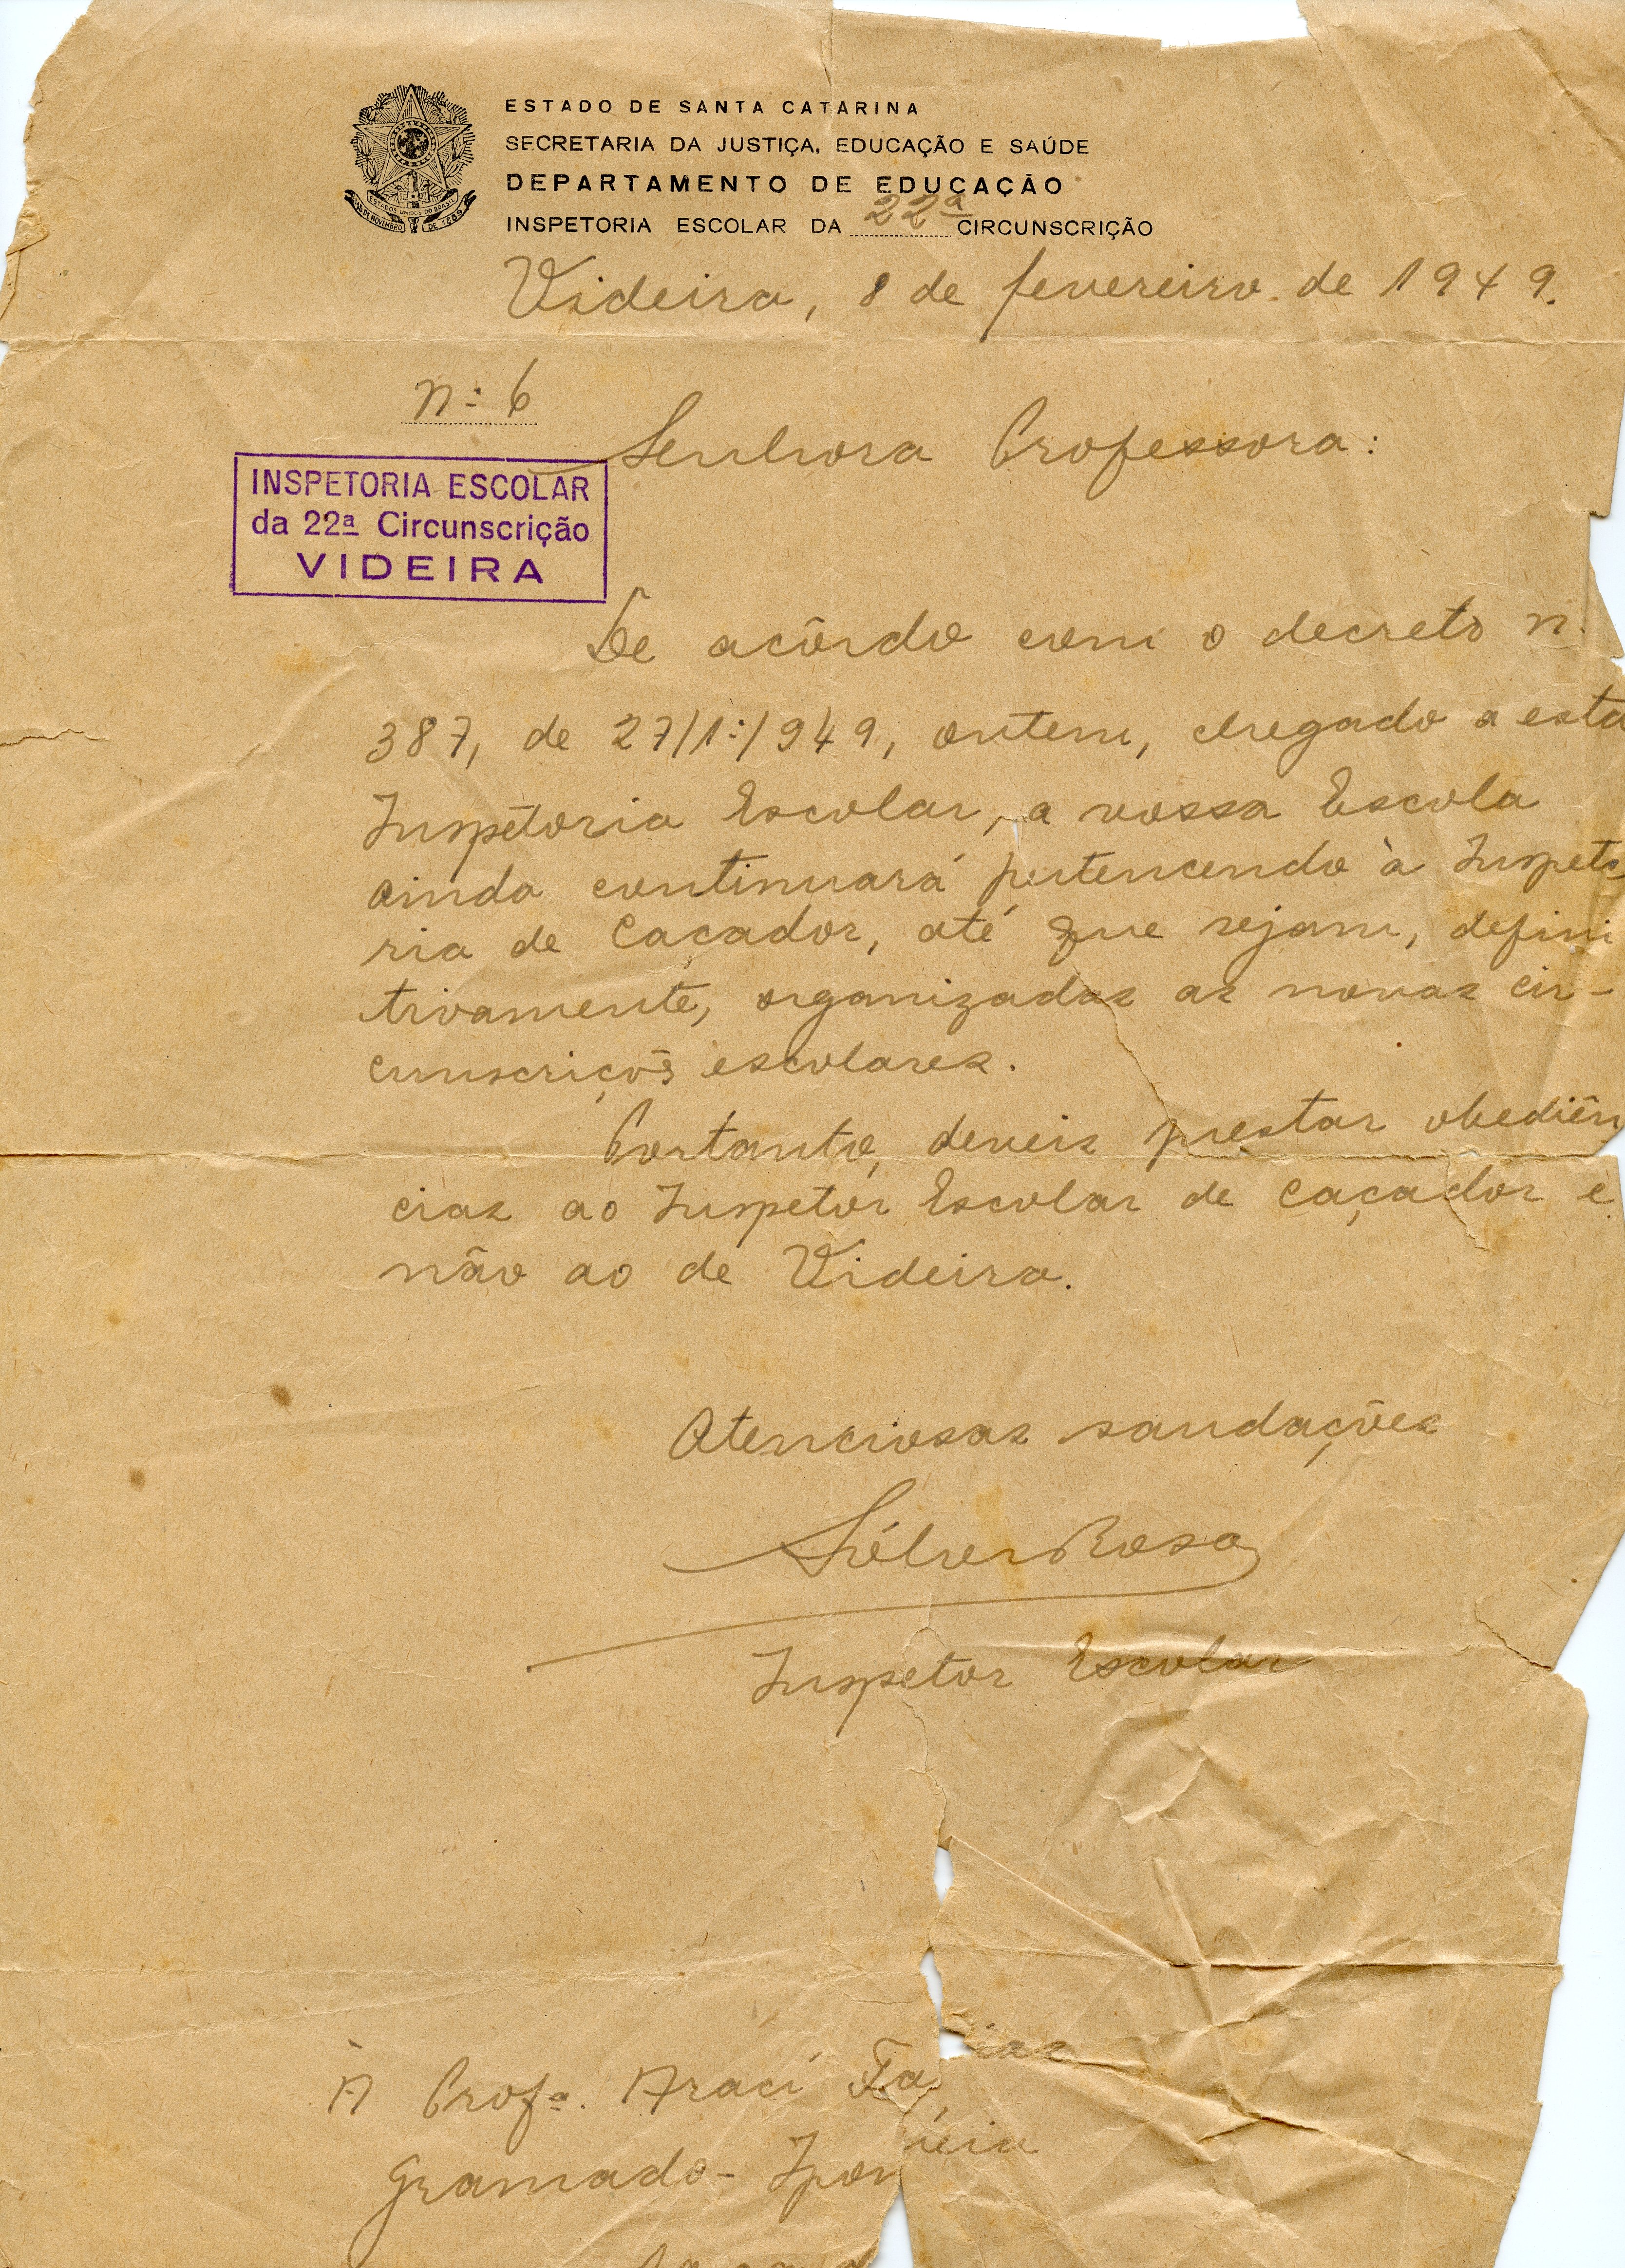 ESTADO DE SANTA CATARINA
SECRETARIA DA JUSTIÇA, EDUCAÇÃO E SAÚDE
DEPARTAMENTO DE EDUCAÇÃO
INSPETORIA ESCOLAR DA 22ª CIRCUNSCRIÇÃO
ESTADOS UNIDOS DO BRASIL
15 DE NOVEMBRO DE 1889
Videira, 8 de fevereiro de 1949.
n: 6
Senhora Professora:
INSPETORIA ESCOLAR
da 22ª Circunscrição
VIDEIRA
De acôrdo com o decreto n.
387, de 27/1º/949, ontem, chegado a esta
Inspetoria Escolar, a vossa Escola
ainda continuará pertencendo à Inspeto
ria de Caçador, até que sejam, defini
tivamente, organizadas as novas cir-
cunscriçõs escolares.
Portanto, deveis prestar obediên
cias ao Inspetor Escolar de Caçador e
não ao de Videira.
Atenciosas saudações
Rosa
Inspetor Escolar
À Profª. Araci Farias
Gramado - Ipoméia